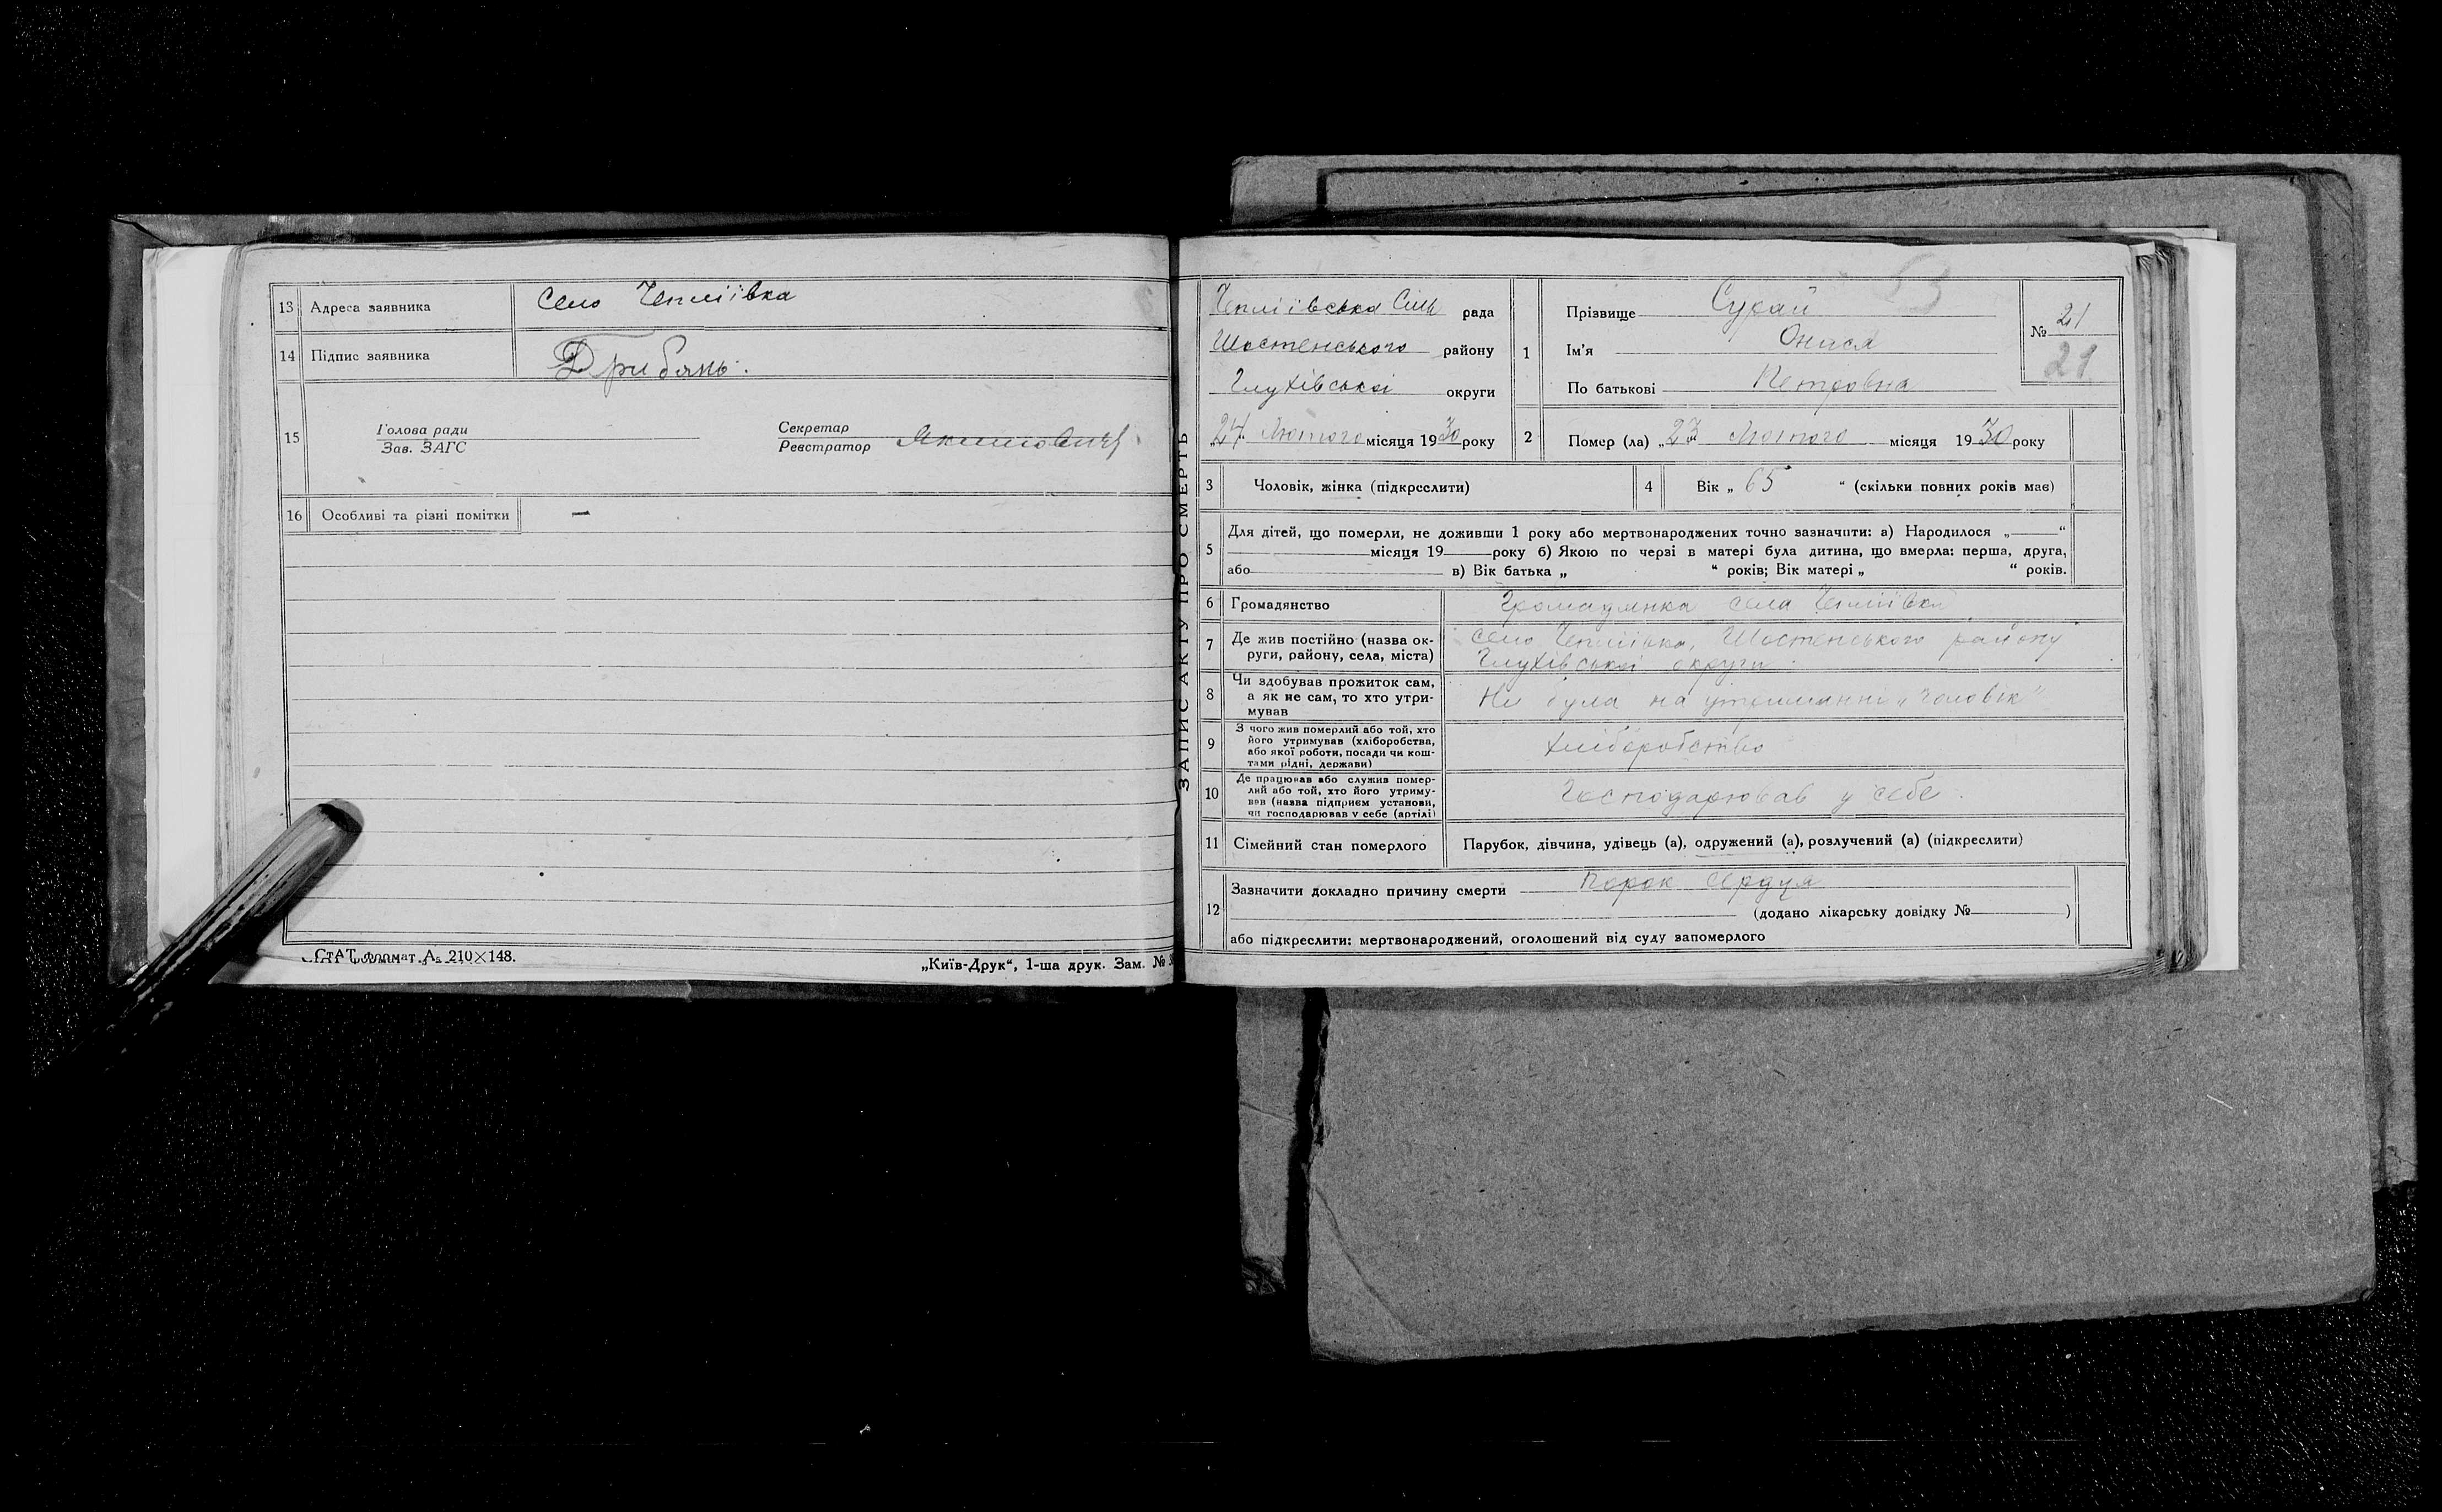 13 Адреса заявника село Чепліївка
14 Підпис заявника Грибань.
15 Голова ради
Зав. ЗАГС
Секретар
Реєстратор
16 Особливі та різні помітки —
СтАТ формат А₅ 210×148.
„Київ-Друк“, 1-ша друк. Зам. №
ЗАПИС АКТУ ПРО СМЕРТЬ
Чепліївська Сіль рада
Шостенського району
Глухівської округи
„24 Лютого місяця 1930 року
1 Прізвище Сукай
Ім'я Онися
По батькові Петровна
№ 21
21
2 Помер (ла) „23 Лютого місяця 1930 року
3 Чоловік, жінка (підкреслити)
4 Вік „ 65 “ (скільки повних років має)
5 Для дітей, що померли, не доживши 1 року або мертвонароджених точно зазначити: а) Народилося „ “
місяця 19 року б) Якою по черзі в матері була дитина, що вмерла: перша, друга,
або в) Вік батька „ “ років; Вік матері „ “ років.
6 Громадянство Громадянка села Чепліївки
7 Де жив постійно (назва ок-
руги, району, села, міста)
село Чепліївка, Шостенського району
Глухівської округи.
8 Чи здобував прожиток сам,
а як не сам, то хто утри-
мував
Ні була на утриманні „чоловік“
9 З чого жив померлий або той, хто
його утримував (хліборобства,
або якої роботи, посади чи кош-
тами рідні, держави)
Хліборобство
10 Де працював або служив помер-
лий або той, хто його утриму-
вав (назва підприєм установи,
чи господарював у себе (артілі)
Господарював у себе.
11 Сімейний стан померлого Парубок, дівчина, удівець (а), одружений (а), розлучений (а) (підкреслити)
12 Зазначити докладно причину смерти порок сердця
(додано лікарську довідку № )
або підкреслити: мертвонароджений, оголошений від суду запомерлого